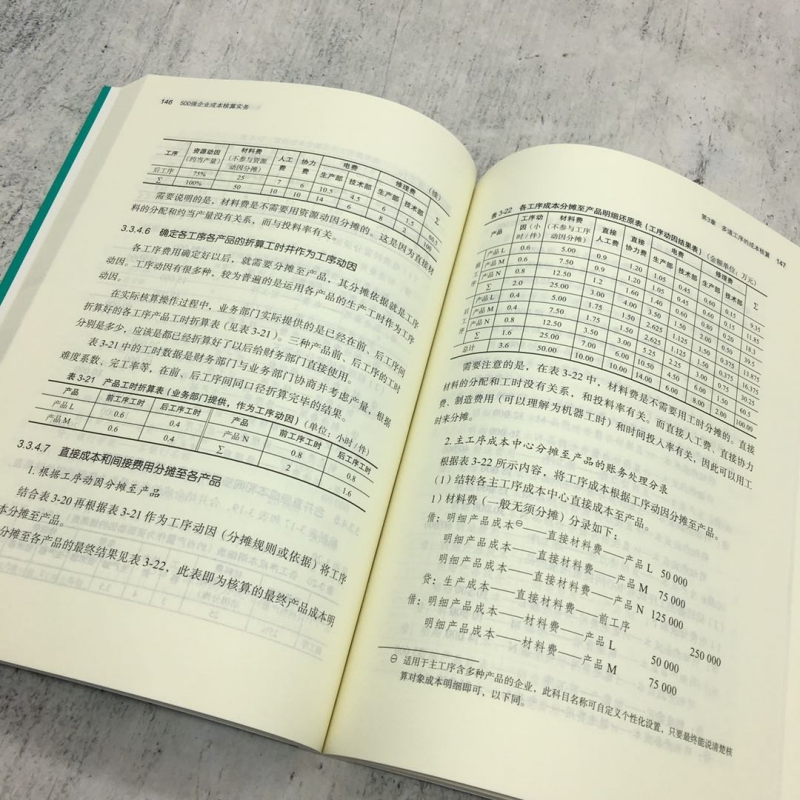 146 500强企业成本核算实务
(续)
工序 资源动因（约当产量） 材料费（不参与资源动因分摊） 人工费 协力费 电费 修理费 Σ
生产部 技术部 生产部 技术部
后工序 75% 25 7 6 10.5 4.5 6 1.5
Σ 100% 50 10 10 14 6 8 2 100
需要说明的是，材料费是不需要用资源动因分摊的。这是因为直接材
料的分配和约当产量没有关系，而与投料率有关。
3.3.4.6 确定各工序各产品的折算工时并作为工序动因
各工序费用确定好以后，就需要分摊至产品，其分摊依据就是工序
动因。工序动因有很多种，较为普遍的是运用各产品的生产工时作为工序
动因。
在实际核算操作过程中，业务部门实际提供的是已经在前、后工序间
折算好的各工序产品工时折算表（见表3-21）。三种产品前、后工序的工时
分别是多少，应该是都已经折算好了以后给财务部门直接使用。
表3-21中的工时数据是财务部门与业务部门协商并考虑产量，根据
难度系数、完工率等，在前、后工序间同口径折算完毕的结果。
表3-21 产品工时折算表（业务部门提供，作为工序动因）（单位：小时/件）
产品 前工序工时 后工序工时 产品 前工序工时 后工序工时
产品L 0.6 0.4 产品N 0.8 0.8
产品M 0.6 0.4 Σ 2 1.6
3.3.4.7 直接成本和间接费用分摊至各产品
1. 根据工序动因分摊至产品
结合表3-20再根据表3-21作为工序动因（分摊规则或依据）将工序
成本分摊至产品。
分摊至各产品的最终结果见表3-22，此表即为核算的最终产品成本明
第3章 多道工序的成本核算 147
表3-22 各工序成本分摊至产品明细还原表（工序动因结果表）（金额单位：万元）
产品 工序动因（小时/件） 材料费（不参与工序动因分摊） 直接人工费 直接协力费 电费 修理费 Σ
生产部 技术部 生产部 技术部
产品L 0.6 5.00 0.9 1.20 1.05 0.45 0.60 0.15 9.35
产品M 0.6 7.50 0.9 1.20 1.05 0.45 0.60 0.15 11.85
产品N 0.8 12.50 1.2 1.60 1.40 0.60 0.80 0.20 18.3
Σ 2.0 25.00 3.00 4.00 3.50 1.50 2.00 0.50
产品L 0.4 5.00 1.75 1.50 2.625 1.125 1.50 0.375 13.875
产品M 0.4 7.50 1.75 1.50 2.625 1.125 1.50 0.375 16.375
产品N 0.8 12.50 3.50 3.00 5.25 2.25 3.00 0.75 30.25
Σ 1.6 25.00 7.00 6.00 10.50 4.50 6.00 1.50 60.5
总计 3.6 50.00 10.00 10.00 14.00 6.00 8.00 2.00 100.00
需要注意的是，在表3-22中，材料费是不需要用工时分摊的。直接
材料的分配和工时没有关系，和投料率有关。而直接人工费、直接协力
费、制造费用（可以理解为机器工时）和时间投入率有关，因此可以用工
时来分摊。
2. 主工序成本中心分摊至产品的账务处理分录
根据表3-22所示内容，将工序成本根据工序动因分摊至产品。
（1）结转各主工序成本中心直接成本至产品。
1）材料费（一般无须分摊）分录如下：
借：明细产品成本㊀——直接材料费——产品L 50 000
明细产品成本——直接材料费——产品M 75 000
明细产品成本——直接材料费——产品N 125 000
贷：生产成本——直接材料费——前工序 250 000
借：明细产品成本——材料费——产品L 50 000
明细产品成本——材料费——产品M 75 000
㊀ 适用于主工序含多种产品的企业，此科目名称可自定义个性化设置，只要最终能说清楚核
算对象成本明细即可，以下同。